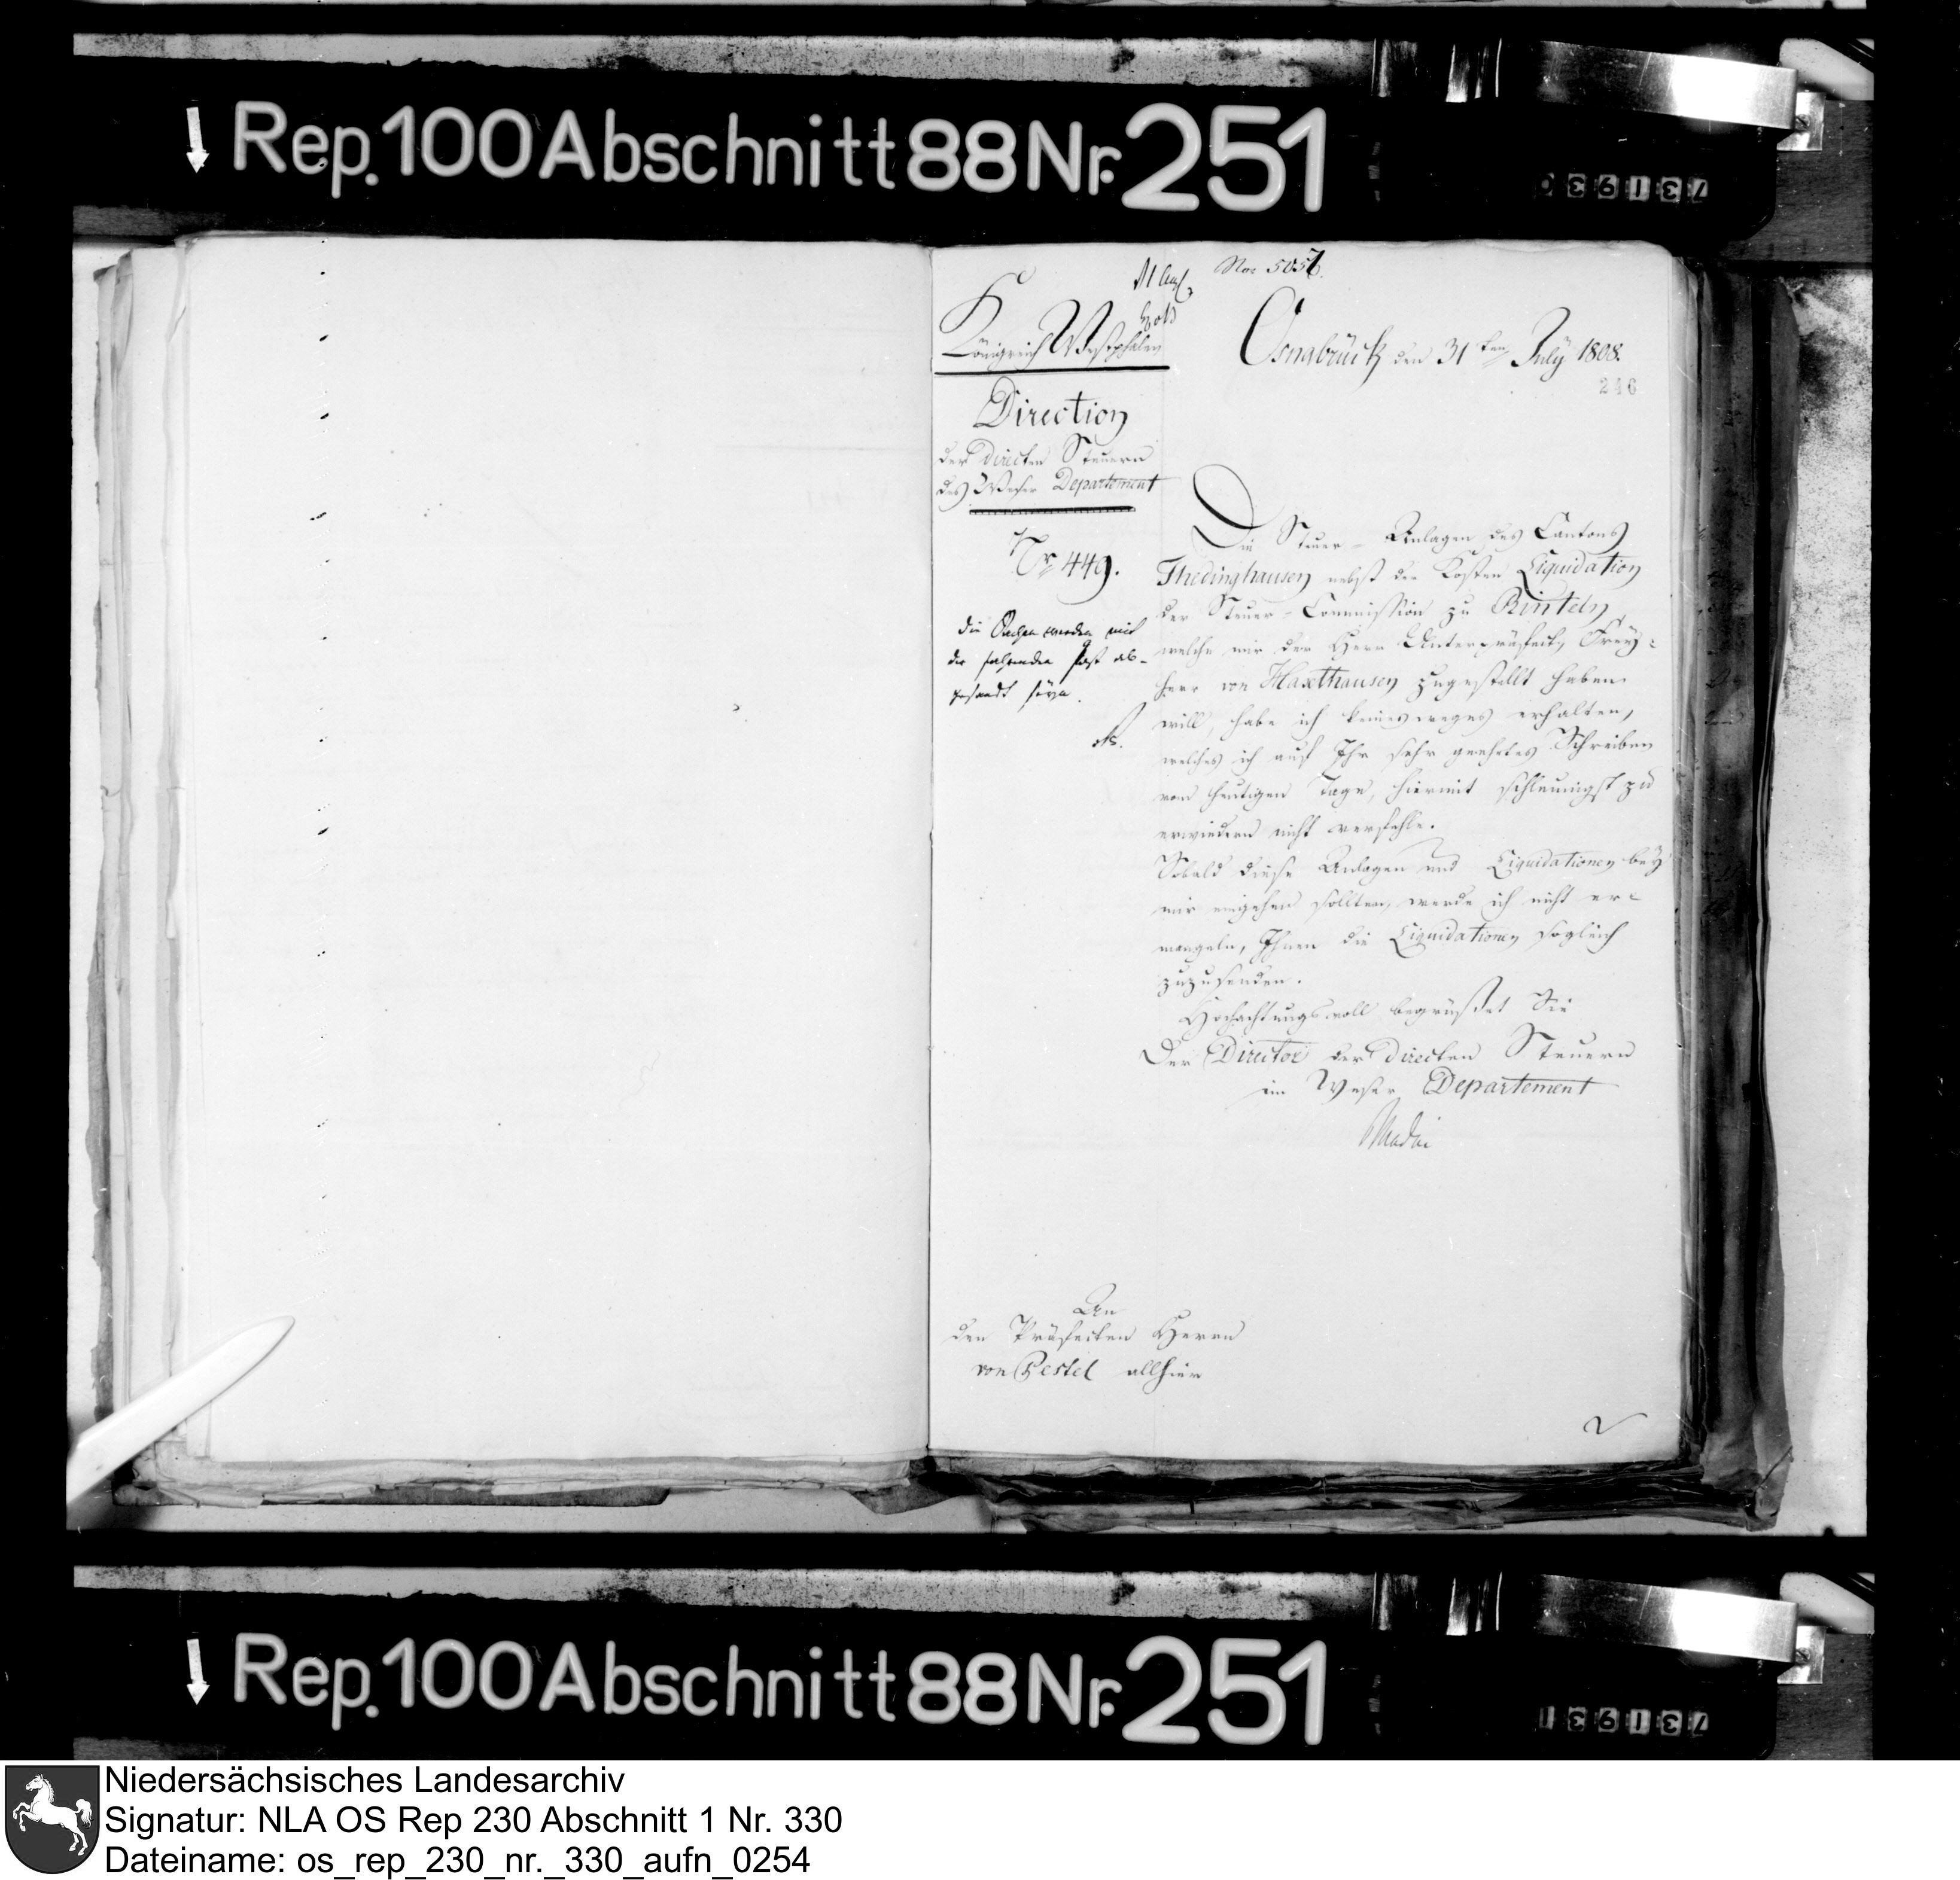 Rep. 100 Abschnitt 88 Nr. 251
731930
No: 5057.
Königreich Westphalen
Osnabrück den 31ten July 1808.
246
Direction
der directen Steuern
des Weser Departement
Nr. 449.
die Sachen werden mit
der fahrenden Post ab-
gesandt seyn.
Die Steuer-Anlagen des Cantons
Thedinghausen nebst der Kosten Liquidation
der Steuer-Commission zu Rinteln,
welche mir der Herr Unterpräfect, Frey-
herr von Haxthausen zugestellt haben
will, habe ich keinesweges erhalten,
welches ich auf Ihr sehr geehrtes Schreiben
vom heutigen Tage, hiermit schleunigst zu
erwiedern nicht verfehle.
Sobald diese Anlagen und Liquidationen bey
mir eingehen sollten, werde ich nicht er-
mangeln, Ihnen die Liquidationen sogleich
zuzusenden.
Hochachtungsvoll begrüßet Sie
Der Director der directen Steuern
im Weser Departement
Madai
An
den Präfecten Herrn
von Pestel allhier
Rep. 100 Abschnitt 88 Nr. 251
731931
Niedersächsisches Landesarchiv
Signatur: NLA OS Rep 230 Abschnitt 1 Nr. 330
Dateiname: os_rep_230_nr._330_aufn_0254